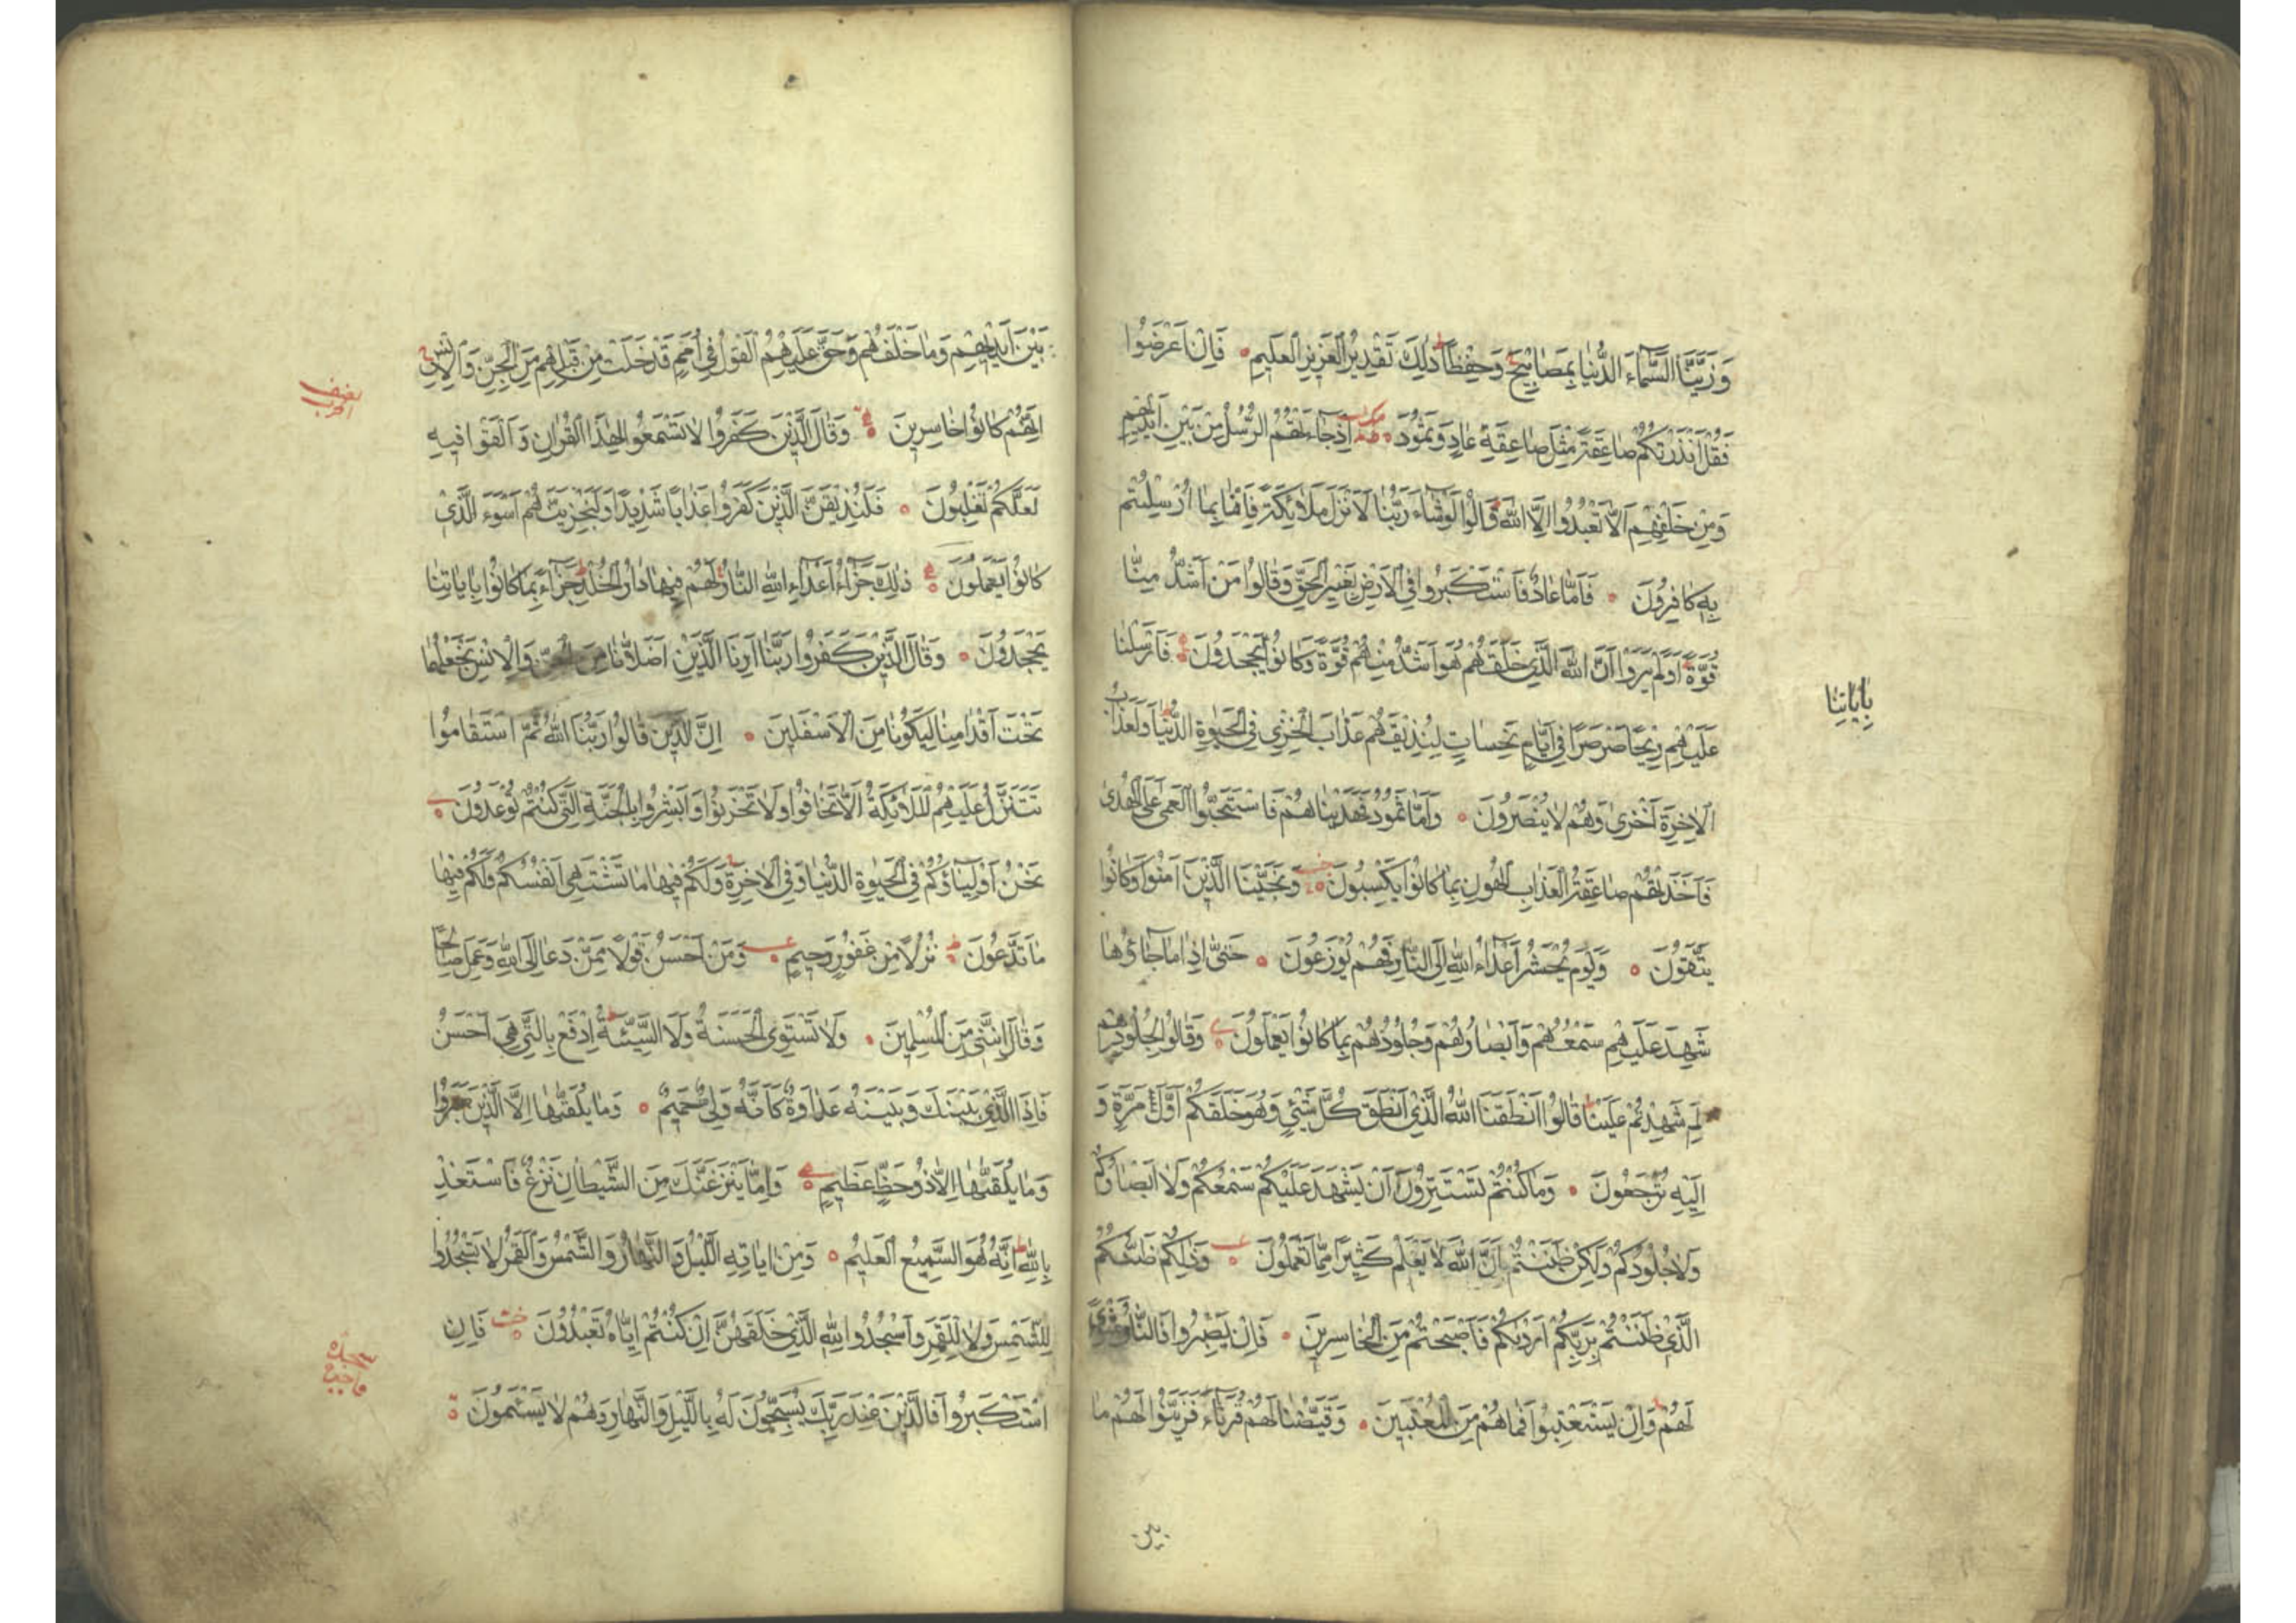 وَزَيَّنَّا السَّمَآءَ الدُّنْيَا بِمَصَابِيْحَ وَحِفْظًا ذٰلِكَ تَقْدِيْرُ الْعَزِيْزِ الْعَلِيْمِ فَاِنْ اَعْرَضُوْا
فَقُلْ اَنْذَرْتُكُمْ صَاعِقَةً مِثْلَ صَاعِقَةِ عَادٍ وَثَمُوْدَ اِذْ جَاءَتْهُمُ الرُّسُلُ مِنْ بَيْنِ اَيْدِيْهِمْ
وَمِنْ خَلْفِهِمْ اَلَّا تَعْبُدُوْا اِلَّا اللّٰهَ قَالُوْا لَوْ شَآءَ رَبُّنَا لَاَنْزَلَ مَلَائِكَةً فَاِنَّا بِمَا اُرْسِلْتُمْ
بِهٖ كَافِرُوْنَ فَاَمَّا عَادٌ فَاسْتَكْبَرُوْا فِي الْاَرْضِ بِغَيْرِ الْحَقِّ وَقَالُوْا مَنْ اَشَدُّ مِنَّا
قُوَّةً اَوَلَمْ يَرَوْا اَنَّ اللّٰهَ الَّذِيْ خَلَقَهُمْ هُوَ اَشَدُّ مِنْهُمْ قُوَّةً وَكَانُوْا يَجْحَدُوْنَ فَاَرْسَلْنَا
بِاٰيَاتِنَا
عَلَيْهِمْ رِيْحًا صَرْصَرًا فِيْ اَيَّامٍ نَحِسَاتٍ لِنُذِيْقَهُمْ عَذَابَ الْخِزْيِ فِي الْحَيٰوةِ الدُّنْيَا وَلَعَذَابُ
الْاٰخِرَةِ اَخْزٰى وَهُمْ لَا يُنْصَرُوْنَ وَاَمَّا ثَمُوْدُ فَهَدَيْنَاهُمْ فَاسْتَحَبُّوا الْعَمٰى عَلَى الْهُدٰى
فَاَخَذَتْهُمْ صَاعِقَةُ الْعَذَابِ الْهُوْنِ بِمَا كَانُوْا يَكْسِبُوْنَ وَنَجَّيْنَا الَّذِيْنَ اٰمَنُوْا وَكَانُوْا
يَتَّقُوْنَ وَيَوْمَ يُحْشَرُ اَعْدَاءُ اللّٰهِ اِلَى النَّارِ فَهُمْ يُوْزَعُوْنَ حَتّٰى اِذَا مَا جَاؤُهَا
شَهِدَ عَلَيْهِمْ سَمْعُهُمْ وَاَبْصَارُهُمْ وَجُلُوْدُهُمْ بِمَا كَانُوْا يَعْمَلُوْنَ وَقَالُوْا لِجُلُوْدِهِمْ
لِمَ شَهِدْتُمْ عَلَيْنَا قَالُوْا اَنْطَقَنَا اللّٰهُ الَّذِيْ اَنْطَقَ كُلَّ شَيْئٍ وَهُوَ خَلَقَكُمْ اَوَّلَ مَرَّةٍ وَ
اِلَيْهِ تُرْجَعُوْنَ وَمَا كُنْتُمْ تَسْتَتِرُوْنَ اَنْ يَشْهَدَ عَلَيْكُمْ سَمْعُكُمْ وَلَا اَبْصَارُكُمْ
وَلَا جُلُوْدُكُمْ وَلٰكِنْ ظَنَنْتُمْ اَنَّ اللّٰهَ لَا يَعْلَمُ كَثِيْرًا مِمَّا تَعْمَلُوْنَ وَذٰلِكُمْ ظَنُّكُمُ
الَّذِيْ ظَنَنْتُمْ بِرَبِّكُمْ اَرْدٰىكُمْ فَاَصْبَحْتُمْ مِنَ الْخَاسِرِيْنَ فَاِنْ يَصْبِرُوْا فَالنَّارُ مَثْوًى
لَهُمْ وَاِنْ يَسْتَعْتِبُوْا فَمَا هُمْ مِنَ الْمُعْتَبِيْنَ وَقَيَّضْنَا لَهُمْ قُرَنَاءَ فَزَيَّنُوْا لَهُمْ مَا
بين
بَيْنَ اَيْدِيْهِمْ وَمَا خَلْفَهُمْ وَحَقَّ عَلَيْهِمُ الْقَوْلُ فِيْ اُمَمٍ قَدْ خَلَتْ مِنْ قَبْلِهِمْ مِنَ الْجِنِّ وَالْاِنْسِ
اِنَّهُمْ كَانُوْا خَاسِرِيْنَ وَقَالَ الَّذِيْنَ كَفَرُوْا لَا تَسْمَعُوْا لِهٰذَا الْقُرْاٰنِ وَالْغَوْا فِيْهِ
لَعَلَّكُمْ تَغْلِبُوْنَ فَلَنُذِيْقَنَّ الَّذِيْنَ كَفَرُوْا عَذَابًا شَدِيْدًا وَلَنَجْزِيَنَّهُمْ اَسْوَءَ الَّذِيْ
كَانُوْا يَعْمَلُوْنَ ذٰلِكَ جَزَآءُ اَعْدَآءِ اللّٰهِ النَّارُ لَهُمْ فِيْهَا دَارُ الْخُلْدِ جَزَآءً بِمَا كَانُوْا بِاٰيَاتِنَا
يَجْحَدُوْنَ وَقَالَ الَّذِيْنَ كَفَرُوْا رَبَّنَا اَرِنَا الَّذَيْنِ اَضَلَّانَا مِنَ الْجِنِّ وَالْاِنْسِ نَجْعَلْهُمَا
تَحْتَ اَقْدَامِنَا لِيَكُوْنَا مِنَ الْاَسْفَلِيْنَ اِنَّ الَّذِيْنَ قَالُوْا رَبُّنَا اللّٰهُ ثُمَّ اسْتَقَامُوْا
تَتَنَزَّلُ عَلَيْهِمُ الْمَلَائِكَةُ اَلَّا تَخَافُوْا وَلَا تَحْزَنُوْا وَاَبْشِرُوْا بِالْجَنَّةِ الَّتِيْ كُنْتُمْ تُوْعَدُوْنَ
نَحْنُ اَوْلِيَاؤُكُمْ فِي الْحَيٰوةِ الدُّنْيَا وَفِي الْاٰخِرَةِ وَلَكُمْ فِيْهَا مَا تَشْتَهِيْ اَنْفُسُكُمْ وَلَكُمْ فِيْهَا
مَا تَدَّعُوْنَ نُزُلًا مِنْ غَفُوْرٍ رَحِيْمٍ وَمَنْ اَحْسَنُ قَوْلًا مِمَّنْ دَعَا اِلَى اللّٰهِ وَعَمِلَ صَالِحًا
وَقَالَ اِنَّنِيْ مِنَ الْمُسْلِمِيْنَ وَلَا تَسْتَوِي الْحَسَنَةُ وَلَا السَّيِّئَةُ اِدْفَعْ بِالَّتِيْ هِيَ اَحْسَنُ
فَاِذَا الَّذِيْ بَيْنَكَ وَبَيْنَهُ عَدَاوَةٌ كَاَنَّهُ وَلِيٌّ حَمِيْمٌ وَمَا يُلَقّٰىهَا اِلَّا الَّذِيْنَ صَبَرُوْا
وَمَا يُلَقّٰىهَا اِلَّا ذُوْ حَظٍّ عَظِيْمٍ وَاِمَّا يَنْزَغَنَّكَ مِنَ الشَّيْطَانِ نَزْغٌ فَاسْتَعِذْ
بِاللّٰهِ اِنَّهُ هُوَ السَّمِيْعُ الْعَلِيْمُ وَمِنْ اٰيَاتِهِ الَّيْلُ وَالنَّهَارُ وَالشَّمْسُ وَالْقَمَرُ لَا تَسْجُدُوْا
لِلشَّمْسِ وَلَا لِلْقَمَرِ وَاسْجُدُوْا لِلّٰهِ الَّذِيْ خَلَقَهُنَّ اِنْ كُنْتُمْ اِيَّاهُ تَعْبُدُوْنَ فَاِنِ
اسْتَكْبَرُوْا فَالَّذِيْنَ عِنْدَ رَبِّكَ يُسَبِّحُوْنَ لَهُ بِاللَّيْلِ وَالنَّهَارِ وَهُمْ لَا يَسْئَمُوْنَ